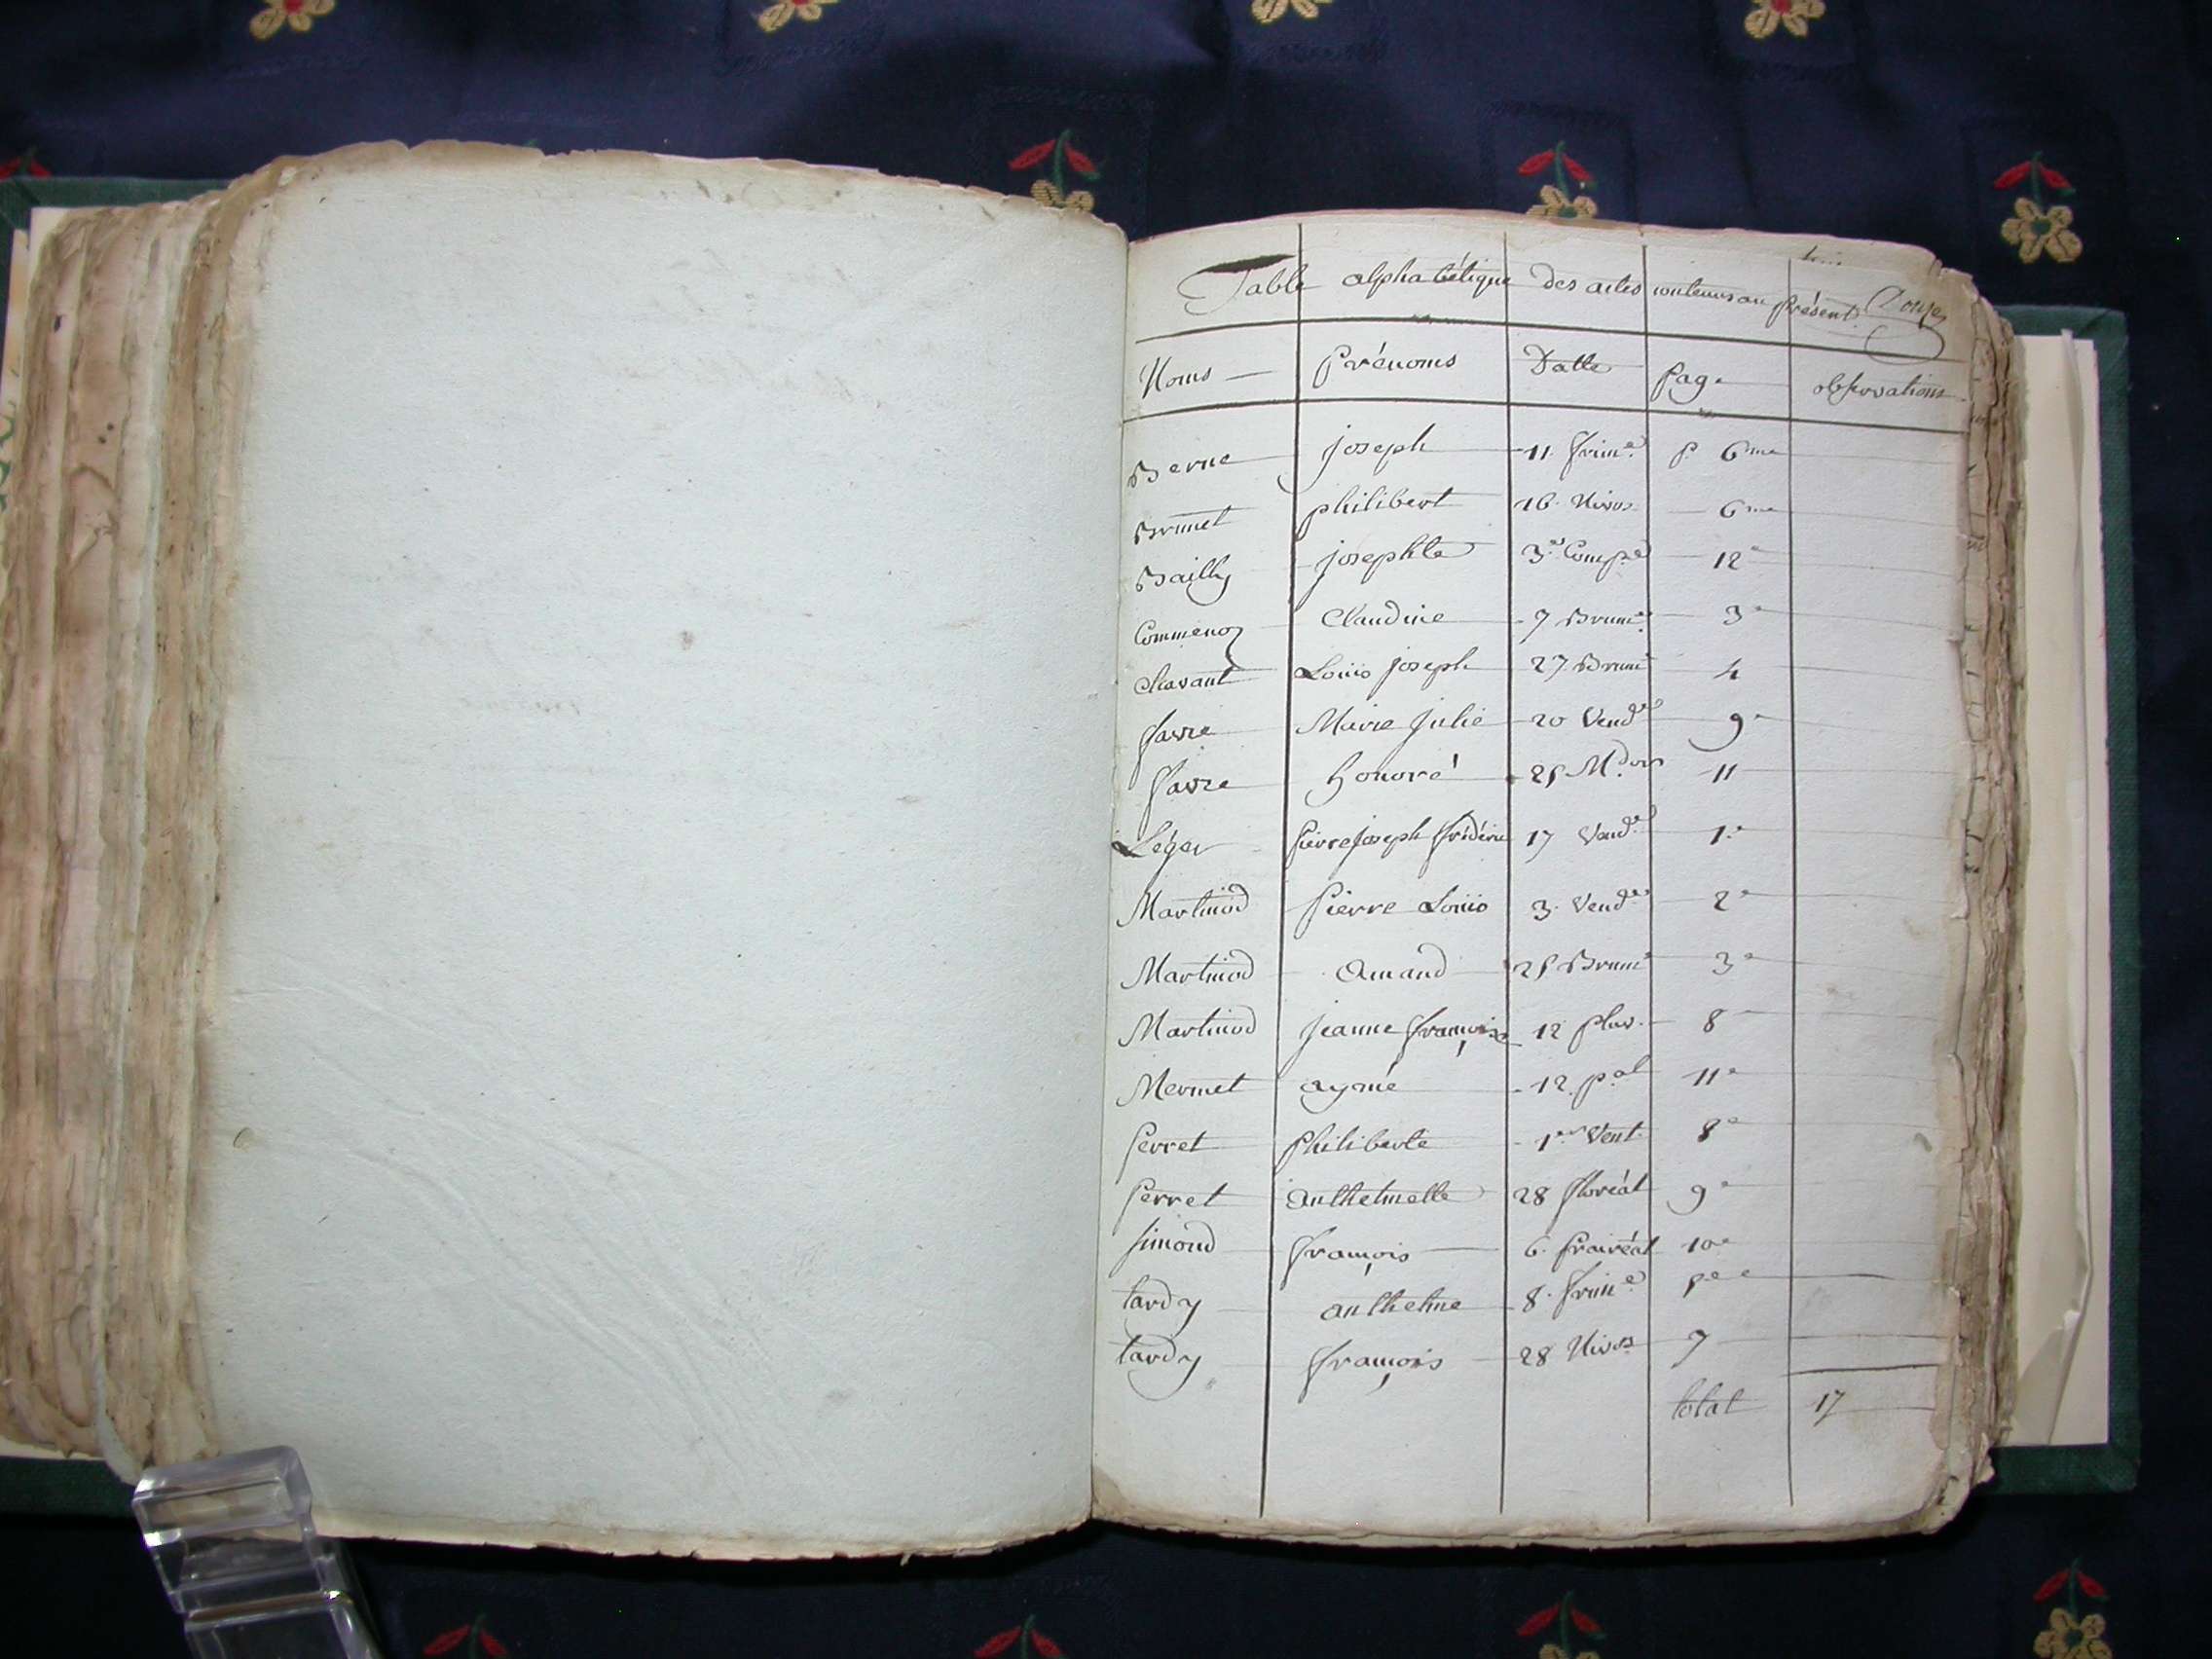 Table alphabétique des actes contenus au présent Douze
Noms Prénoms Datte Page observations
Berne joseph 11 frim.e p. 6me
Brunet philibert 16 Nivos 6me
Bailly josephte 3e Comp.e 12e
Commenoz Claudine 7 Brum.e 3e
Chavant Loüis joseph 27 Brum.e 4
favre Marie julie 20 Vend.e 9e
favre honoré 25 M.dor 11
Léger Pierre joseph frédéric 17 Vend.e 1.e
Martinod Pierre Loüis 3 Vend.e 2e
Martinod Amand 25 Brum.e 3e
Martinod jeanne françoise 12 pluv. 8
Mermet aymé 12 p.al 11e
Perret Philiberte 1er Vent. 8e
Perret anthelmette 28 floréal 9e
Simond françois 6 prairéal 10e
tardy anthelme 8 frim.e 5e
tardy françois 28 Nivos 7
total 17